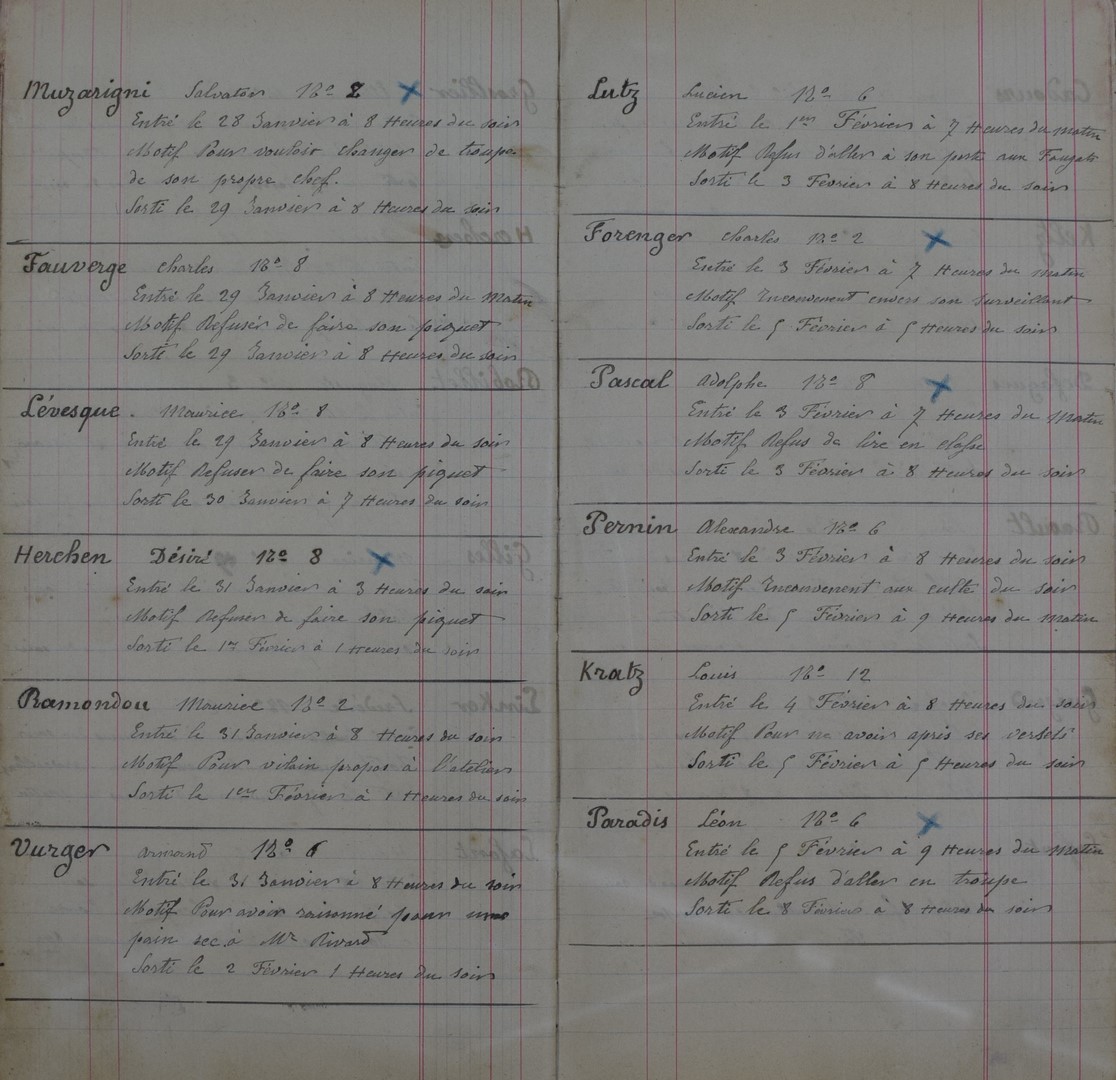 Muzarigni Salvator No 2
Entré le 28 Janvier à 8 Heures du soir
Motif Pour vouloir changer de troupe
de son propre chef.
Sorti le 29 Janvier à 8 Heures du soir
Fauverge Charles No 8
Entré le 29 Janvier à 8 Heures du Matin
Motif Refuser de faire son piquet
Sorti le 29 Janvier à 8 Heures du soir
Lévesque. Maurice No 8
Entré le 29 Janvier à 8 Heures du soir
Motif Refuser de faire son piquet
Sorti le 30 Janvier à 7 Heures du soir
Herchen Désiré No 8
Entré le 31 Janvier à 3 Heures du soir
Motif Refuser de faire son piquet
Sorti le 1er Février à 1 Heures du soir
Ramondou Maurice No 2
Entré le 31 Janvier à 8 Heures du soir
Motif Pour vilain propos à l'atelier
Sorti le 1er Février à 1 Heures du soir
Vurger Armand No 6
Entré le 31 Janvier à 8 Heures du soir
Motif Pour avoir raisonné pour une
pain sec à Mr Rivard
Sorti le 2 Février 1 Heures du soir
Lutz Lucien No 6
Entré le 1er Février à 7 Heures du matin
Motif Refus d'aller à son poste aux Fougats
Sorti le 3 Février à 8 Heures du soir
Forenger Charles No 2
Entré le 3 Février à 7 Heures du matin
Motif Inconvenent envers son surveillant
Sorti le 5 Février à 5 Heures du soir
Pascal Adolphe No 8
Entré le 3 Février à 7 Heures du Matin
Motif Refus de lire en classe
Sorti le 3 Février à 8 Heures du soir
Pernin Alexandre No 6
Entré le 3 Février à 8 Heures du soir
Motif Inconvenent aux culte du soir
Sorti le 5 Février à 9 Heures du Matin
Kratz Louis No 12
Entré le 4 Février à 8 Heures du soir
Motif Pour ne avoir apris ses versets
Sorti le 5 Février à 5 Heures du soir
Paradis Léon No 6
Entré le 5 Février à 9 Heures du Matin
Motif Refus d'aller en troupe
Sorti le 8 Février à 8 Heures du soir